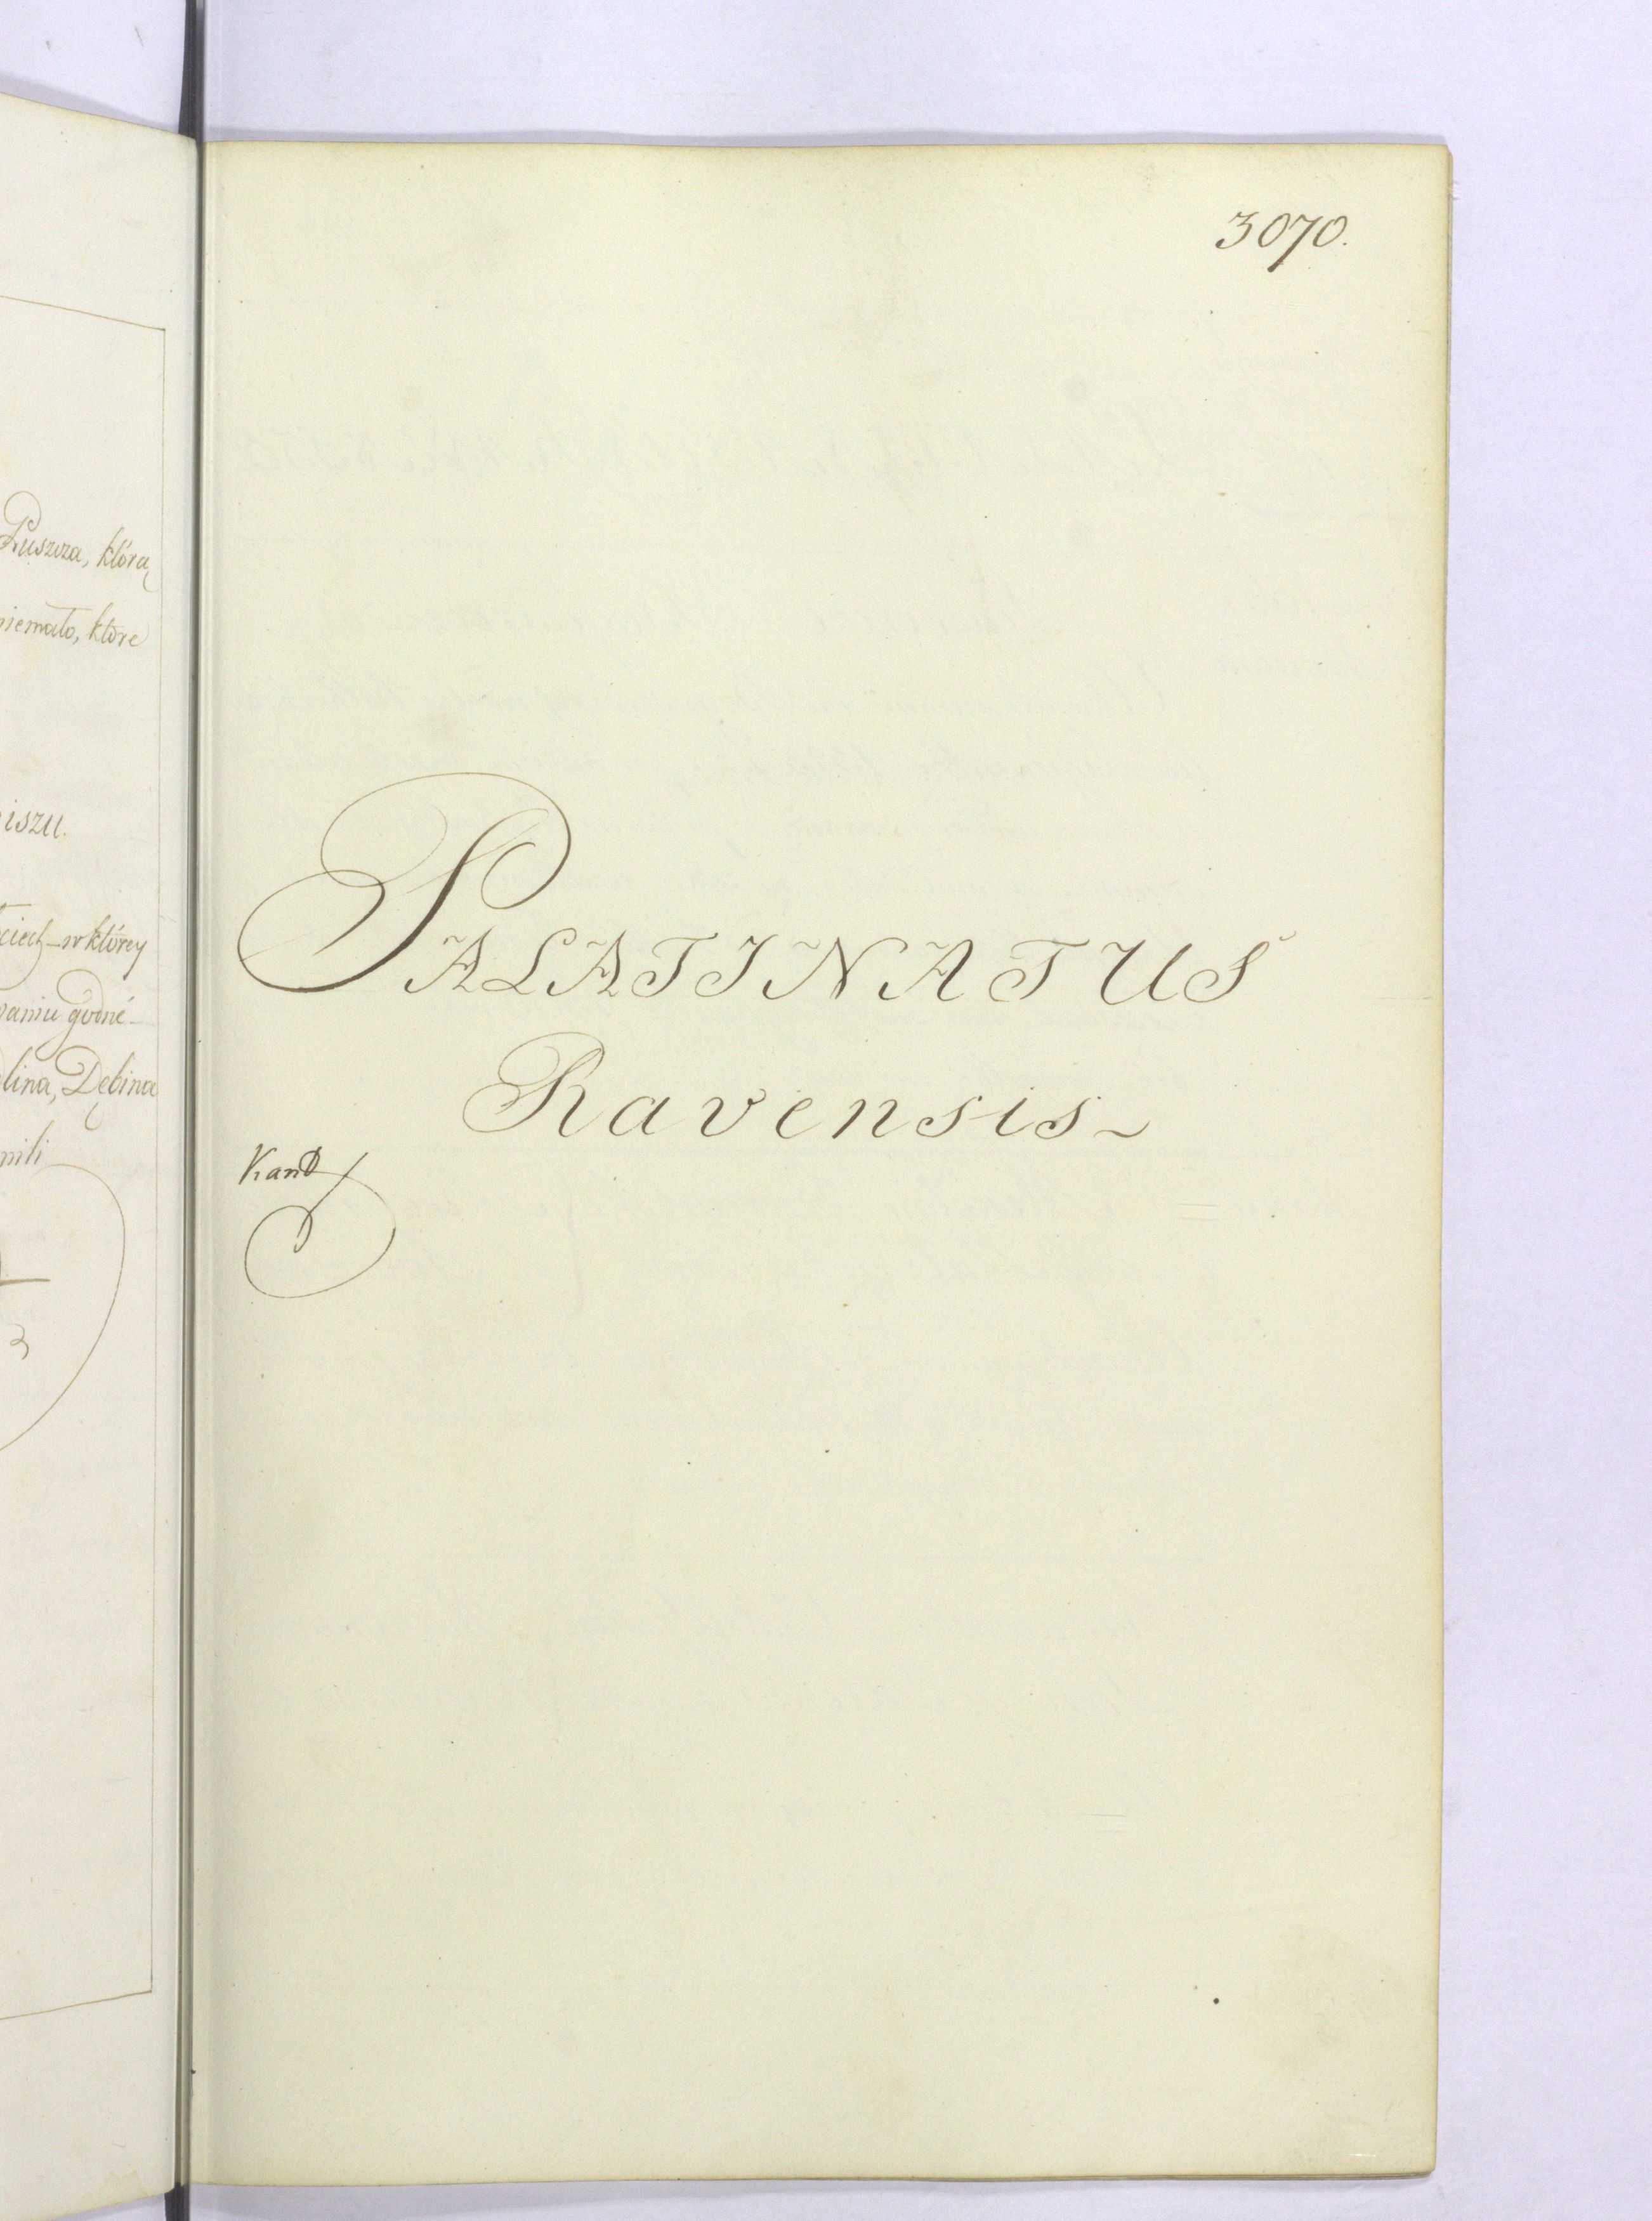 Puszcza, którą
niemało, które
iszu.
ciech – w którey
waniu godné –
lina, Dębina
mili
3070.
PALATINATUS
Ravensis ~
Kand